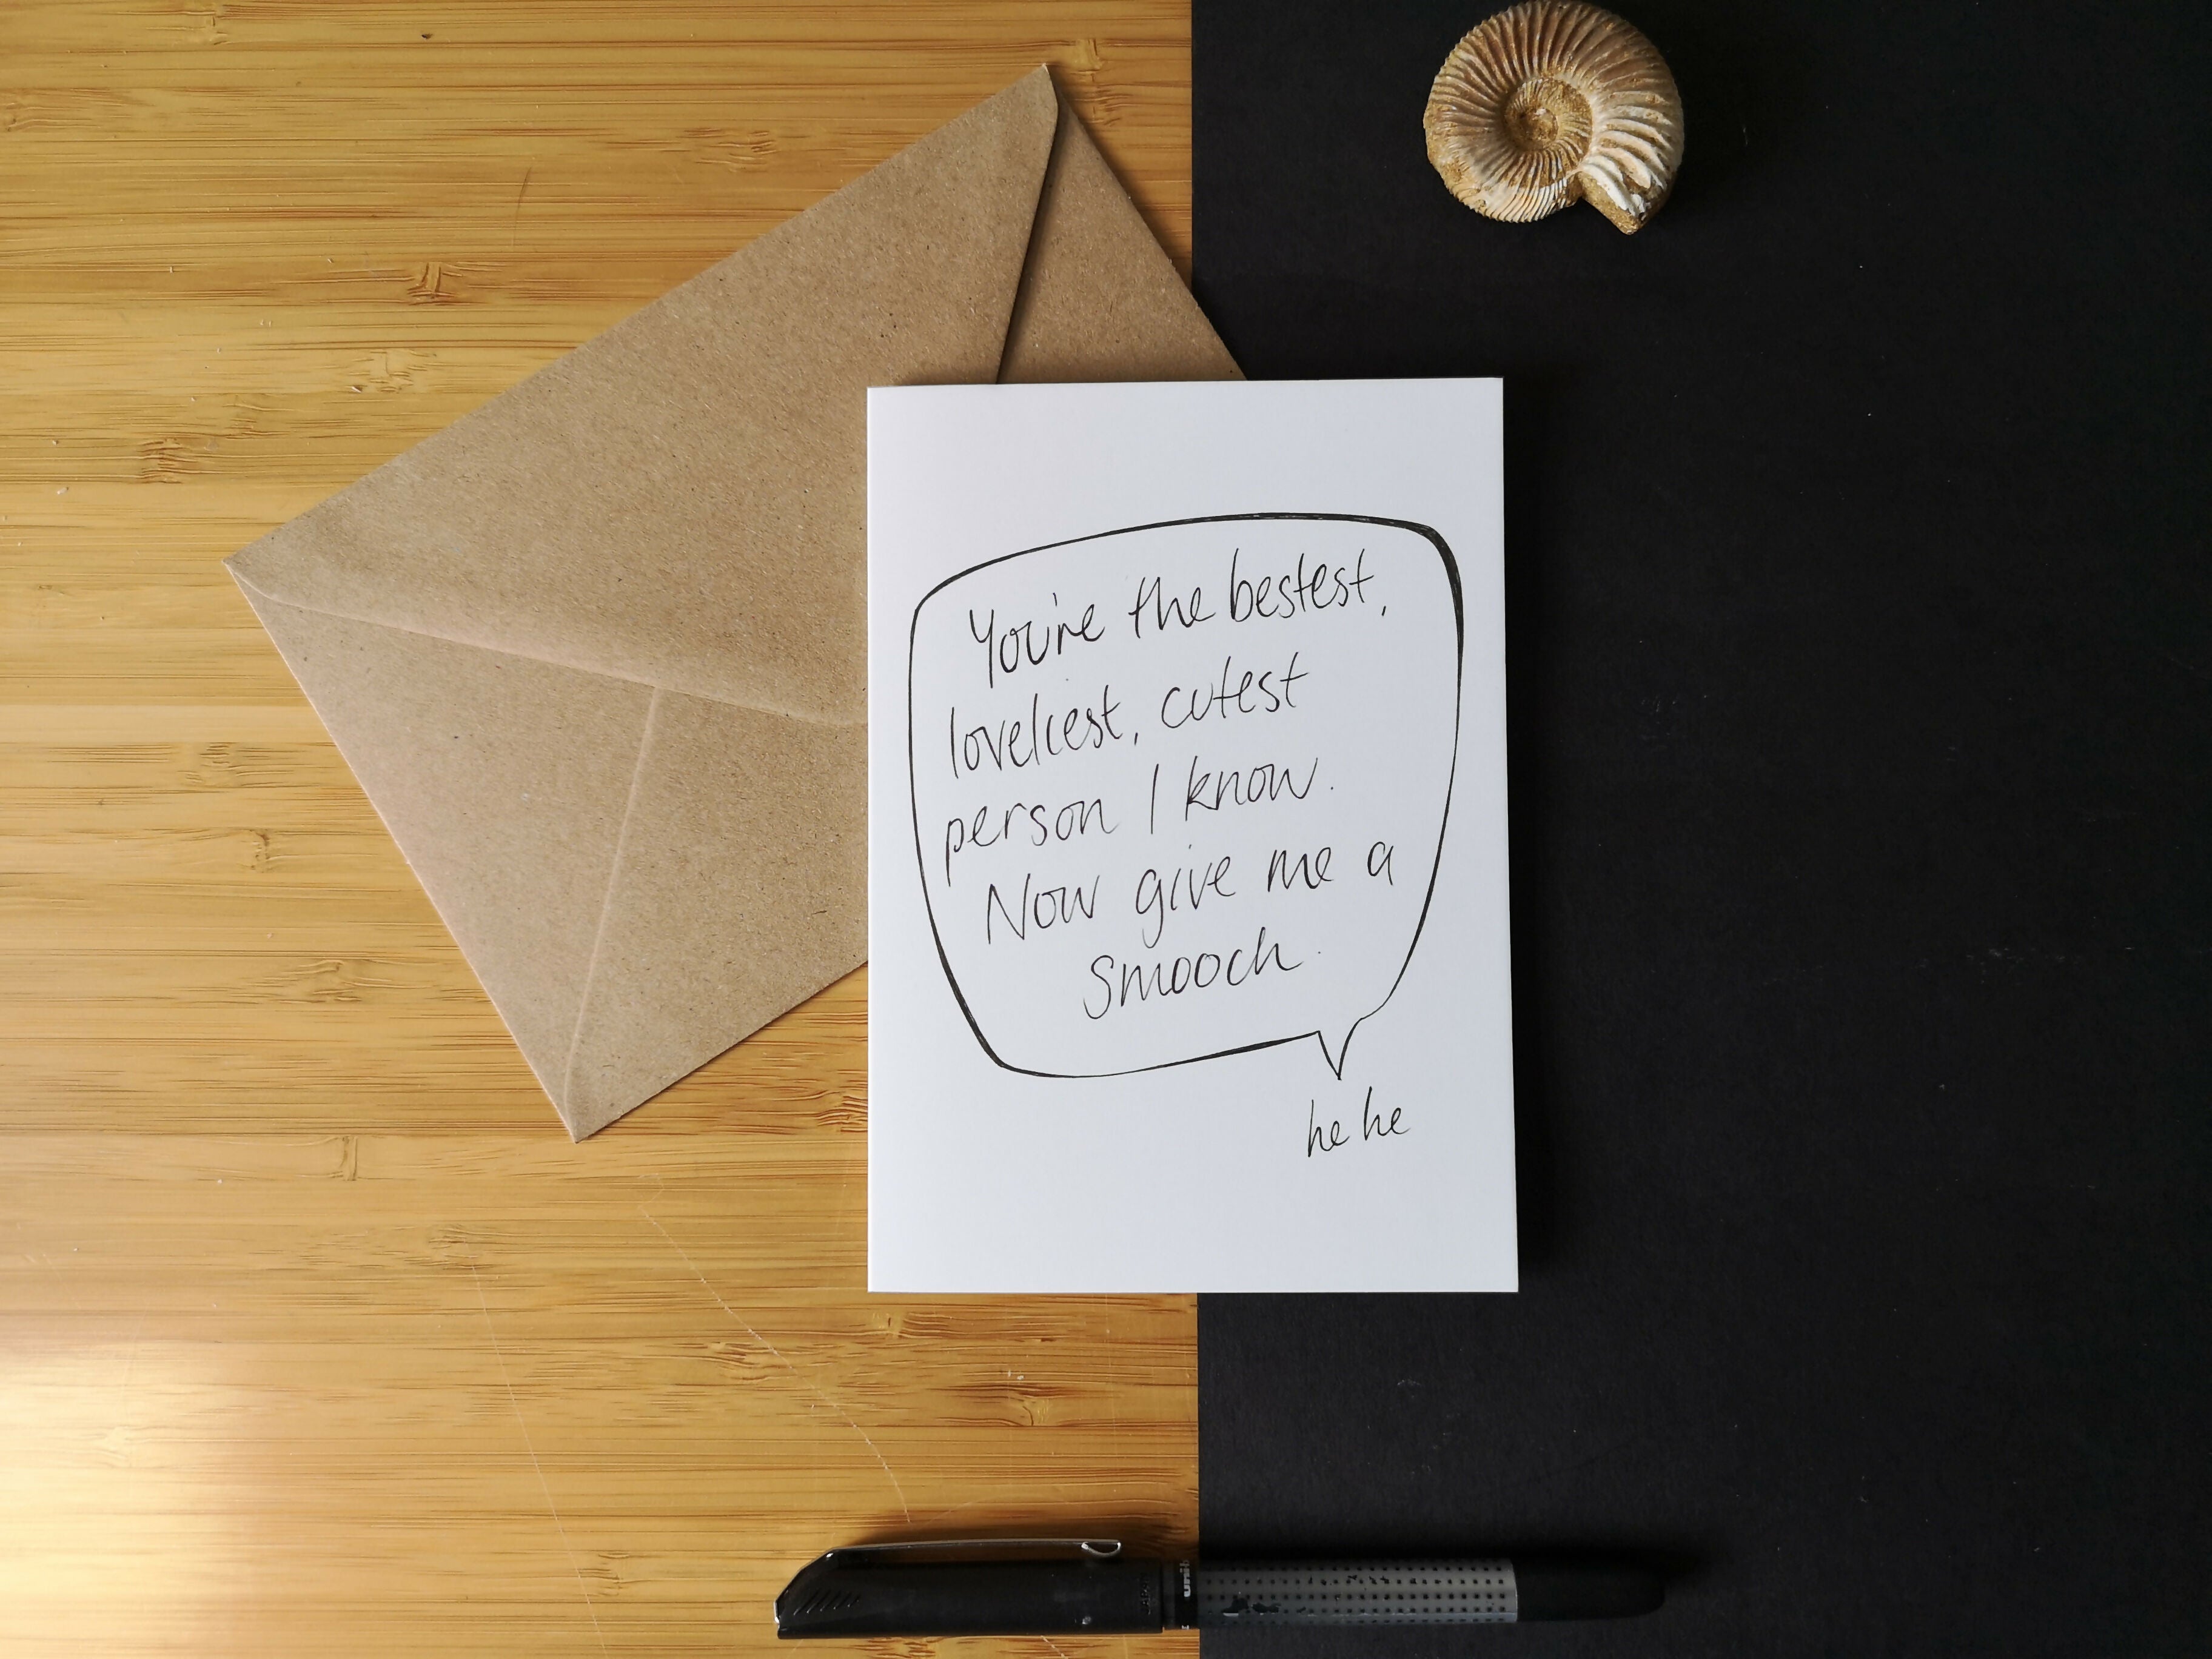 You're the bestest,
loveliest, cutest
person I know.
Now give me a
smooch.
he he
uni